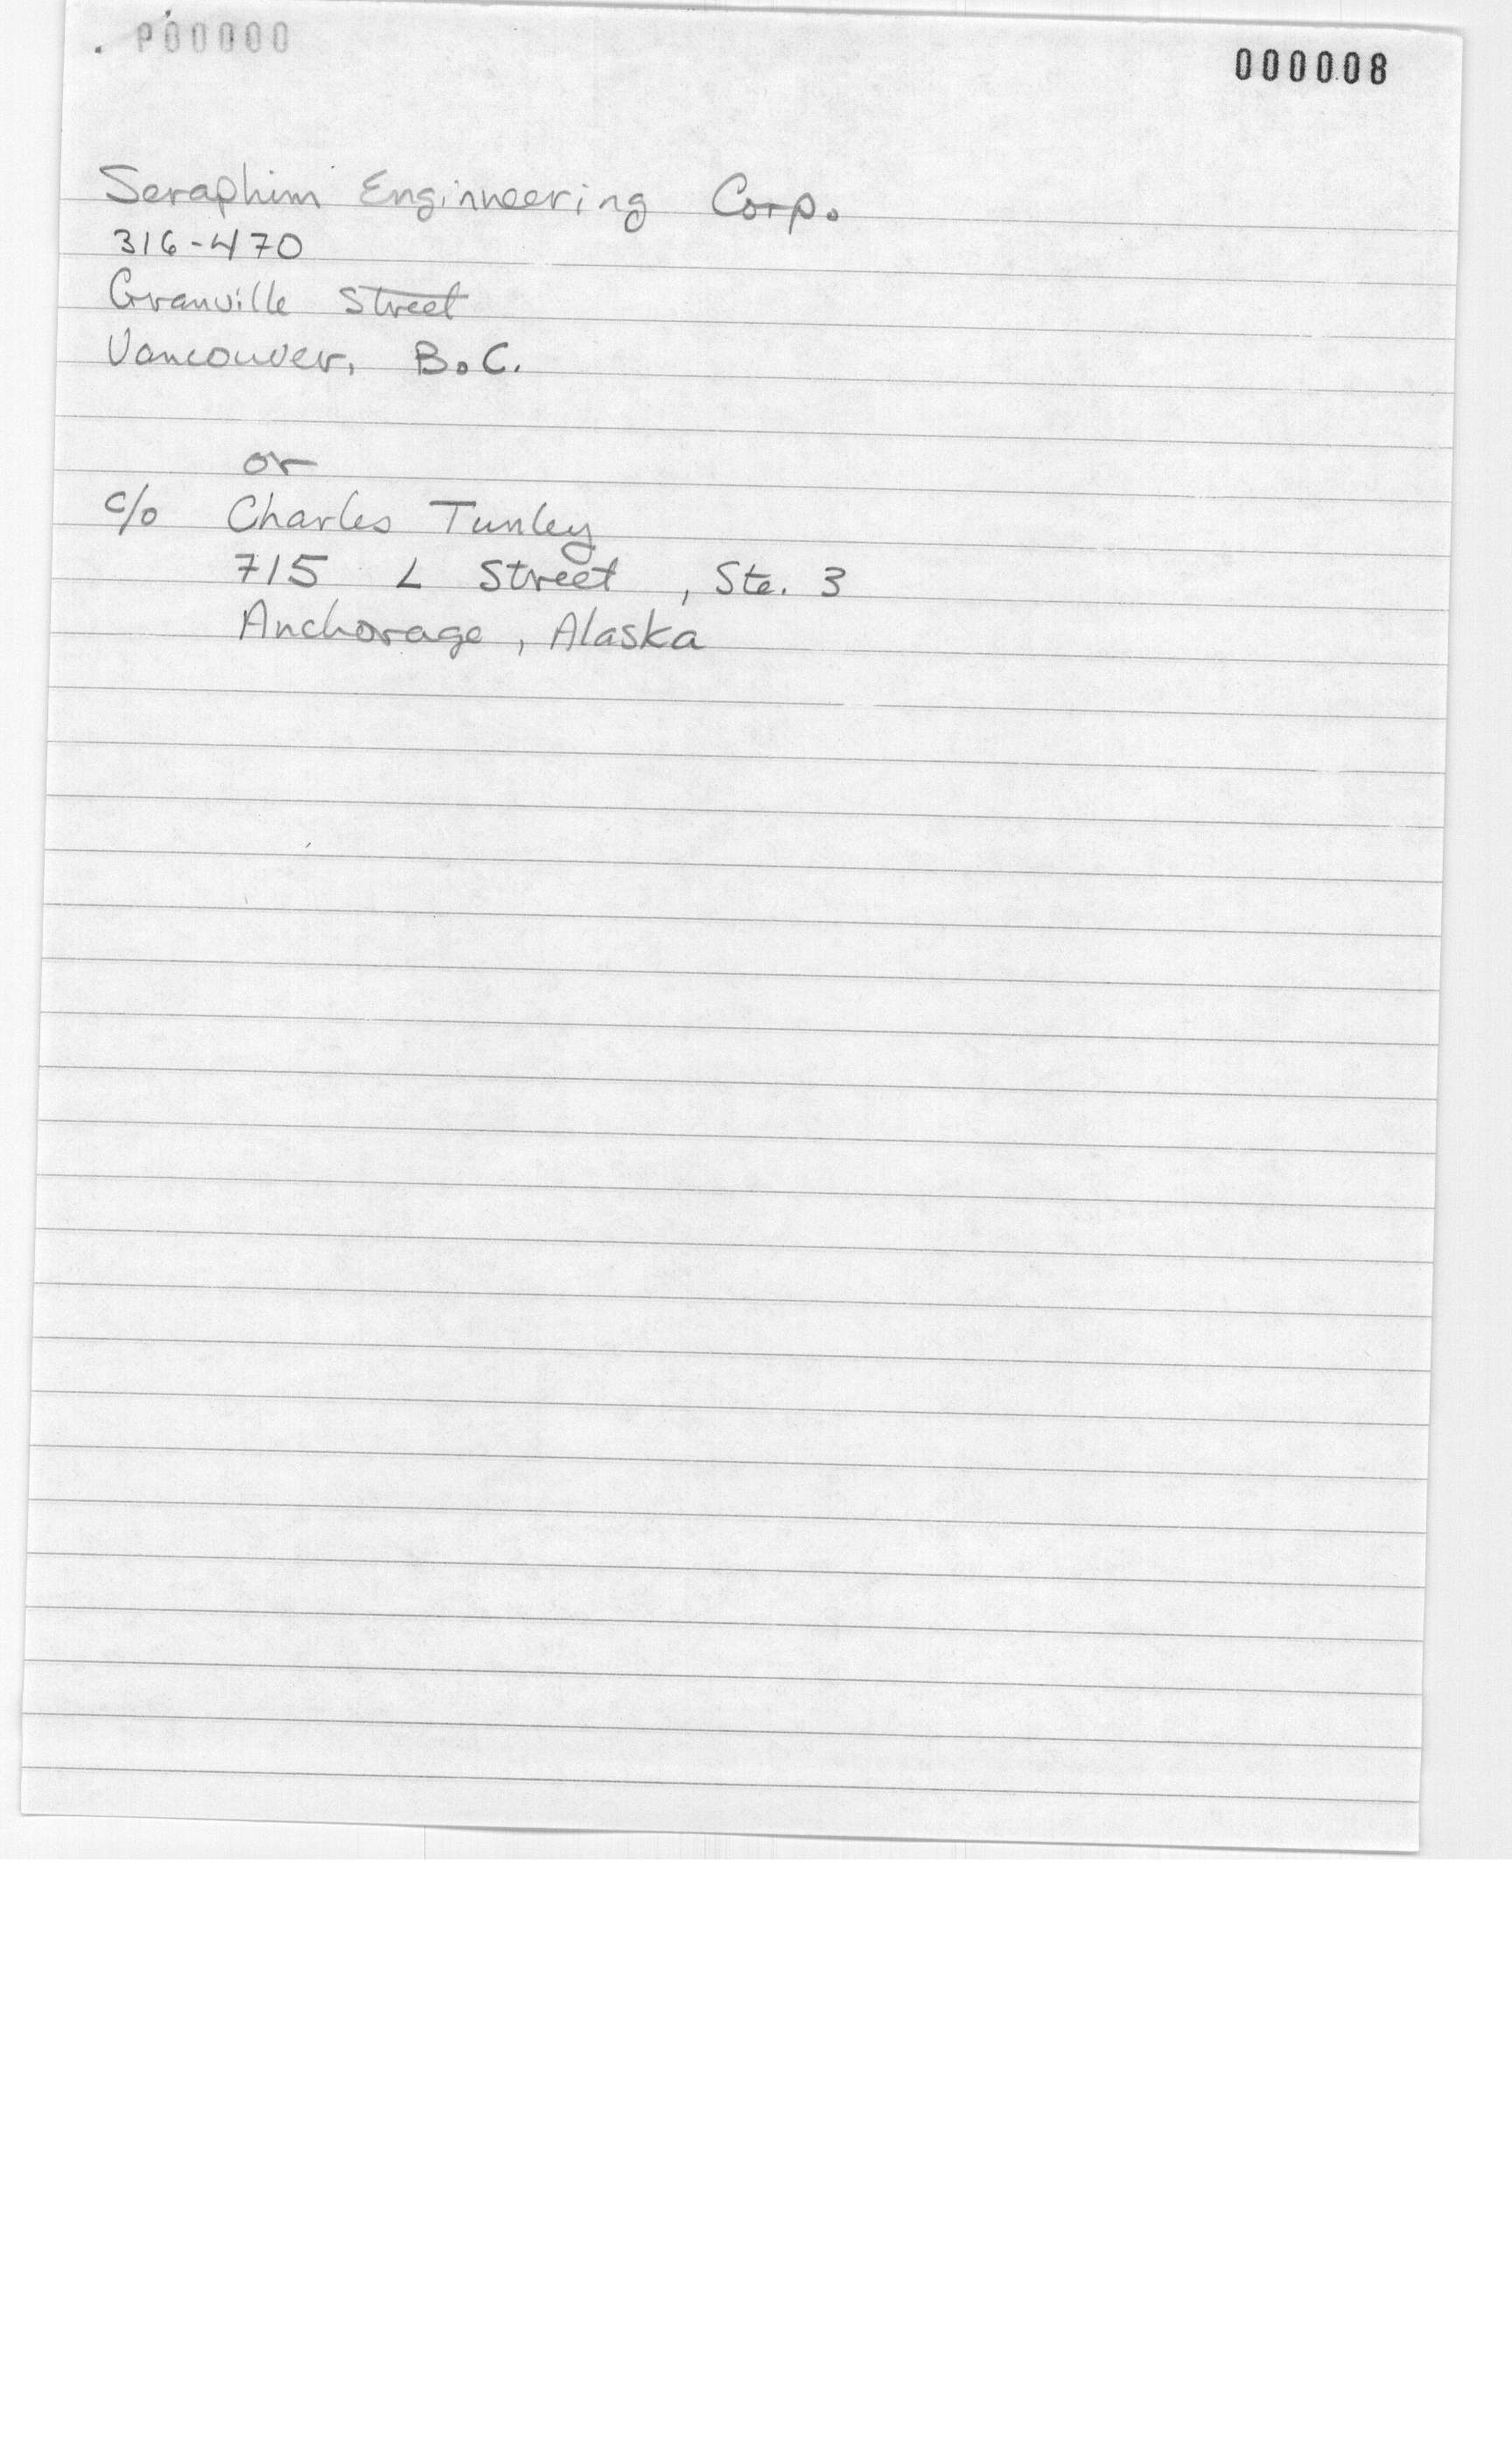 P00000
000008
Seraphim Enginneering Corp.
316-470
Granville Street
Vancouver, B.C.
or
c/o Charles Tunley
715 L Street, Ste. 3
Anchorage, Alaska